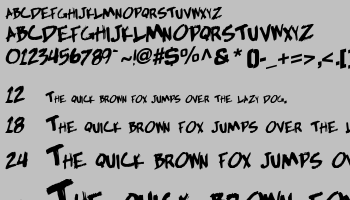 ABCDEFGHIJKLMNOPQRSTUVWXYZ
ABCDEFGHIJKLMNOPQRSTUVWXYZ
0123456789~~!@#$%^&*()-_+=>,<.
12 THE QUICK BROWN FOX JUMPS OVER THE LAZY DOG.
18 THE QUICK BROWN FOX JUMPS OVER THE
24 THE QUICK BROWN FOX JUMPS
THE QUICK BROWN FOX